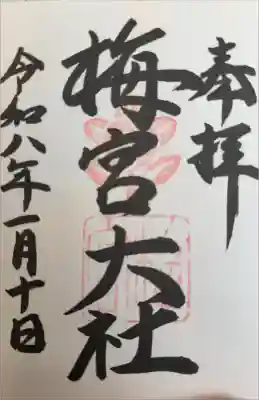 奉拝
梅宮大社
令和八年一月十日